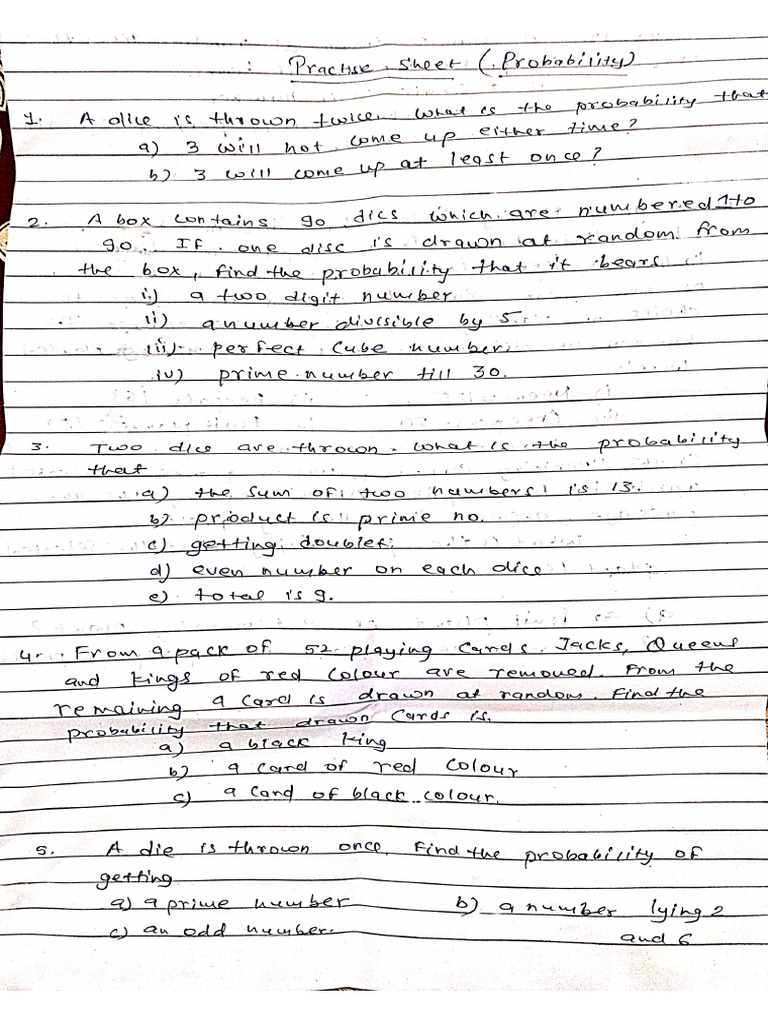 Practise Sheet (Probability)
1. A dice is thrown twice. What is the probability that
a) 3 will not come up either time?
b) 3 will come up at least once?
2. A box contains 90 dics which are numbered 1 to
90. If one disc is drawn at random from
the box, find the probability that it bears
i) a two digit number
ii) a number divisible by 5.
iii) perfect cube number.
iv) prime number till 30.
3. Two dice are thrown. What is the probability
that
a) the sum of two numbers is 13.
b) product is prime no.
c) getting doublet.
d) even number on each dice
e) total is 9.
4. From a pack of 52 playing cards. Jacks, Queens
and kings of red colour are removed. From the
remaining a card is drawn at random. Find the
probability that drawn cards is.
a) a black king
b) a card of red colour
c) a card of black colour.
5. A die is thrown once. Find the probability of
getting
a) a prime number b) a number lying 2
c) an odd number. and 6